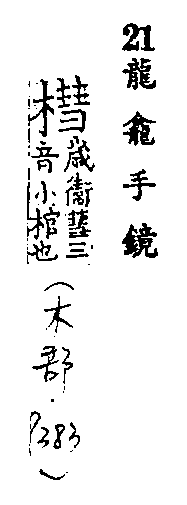 21龍龕手鏡
槥歲衛彗三
音小棺也
(木部.P383)